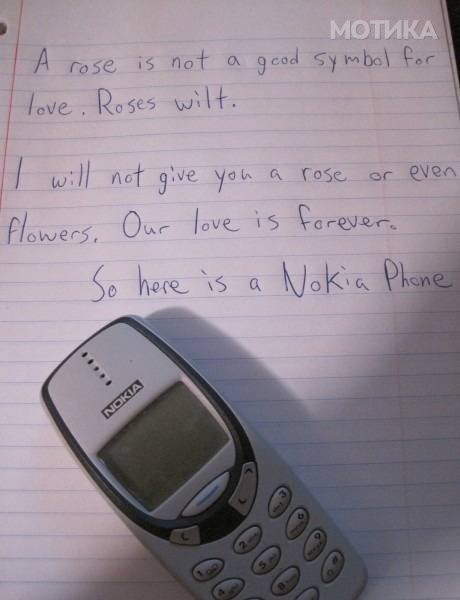 МОТИКА
A rose is not a good symbol for
love. Roses wilt.
I will not give you a rose or even
flowers. Our love is forever.
So here is a Nokia Phone
NOKIA
C
1
2
3
4
5
6
8
9
0